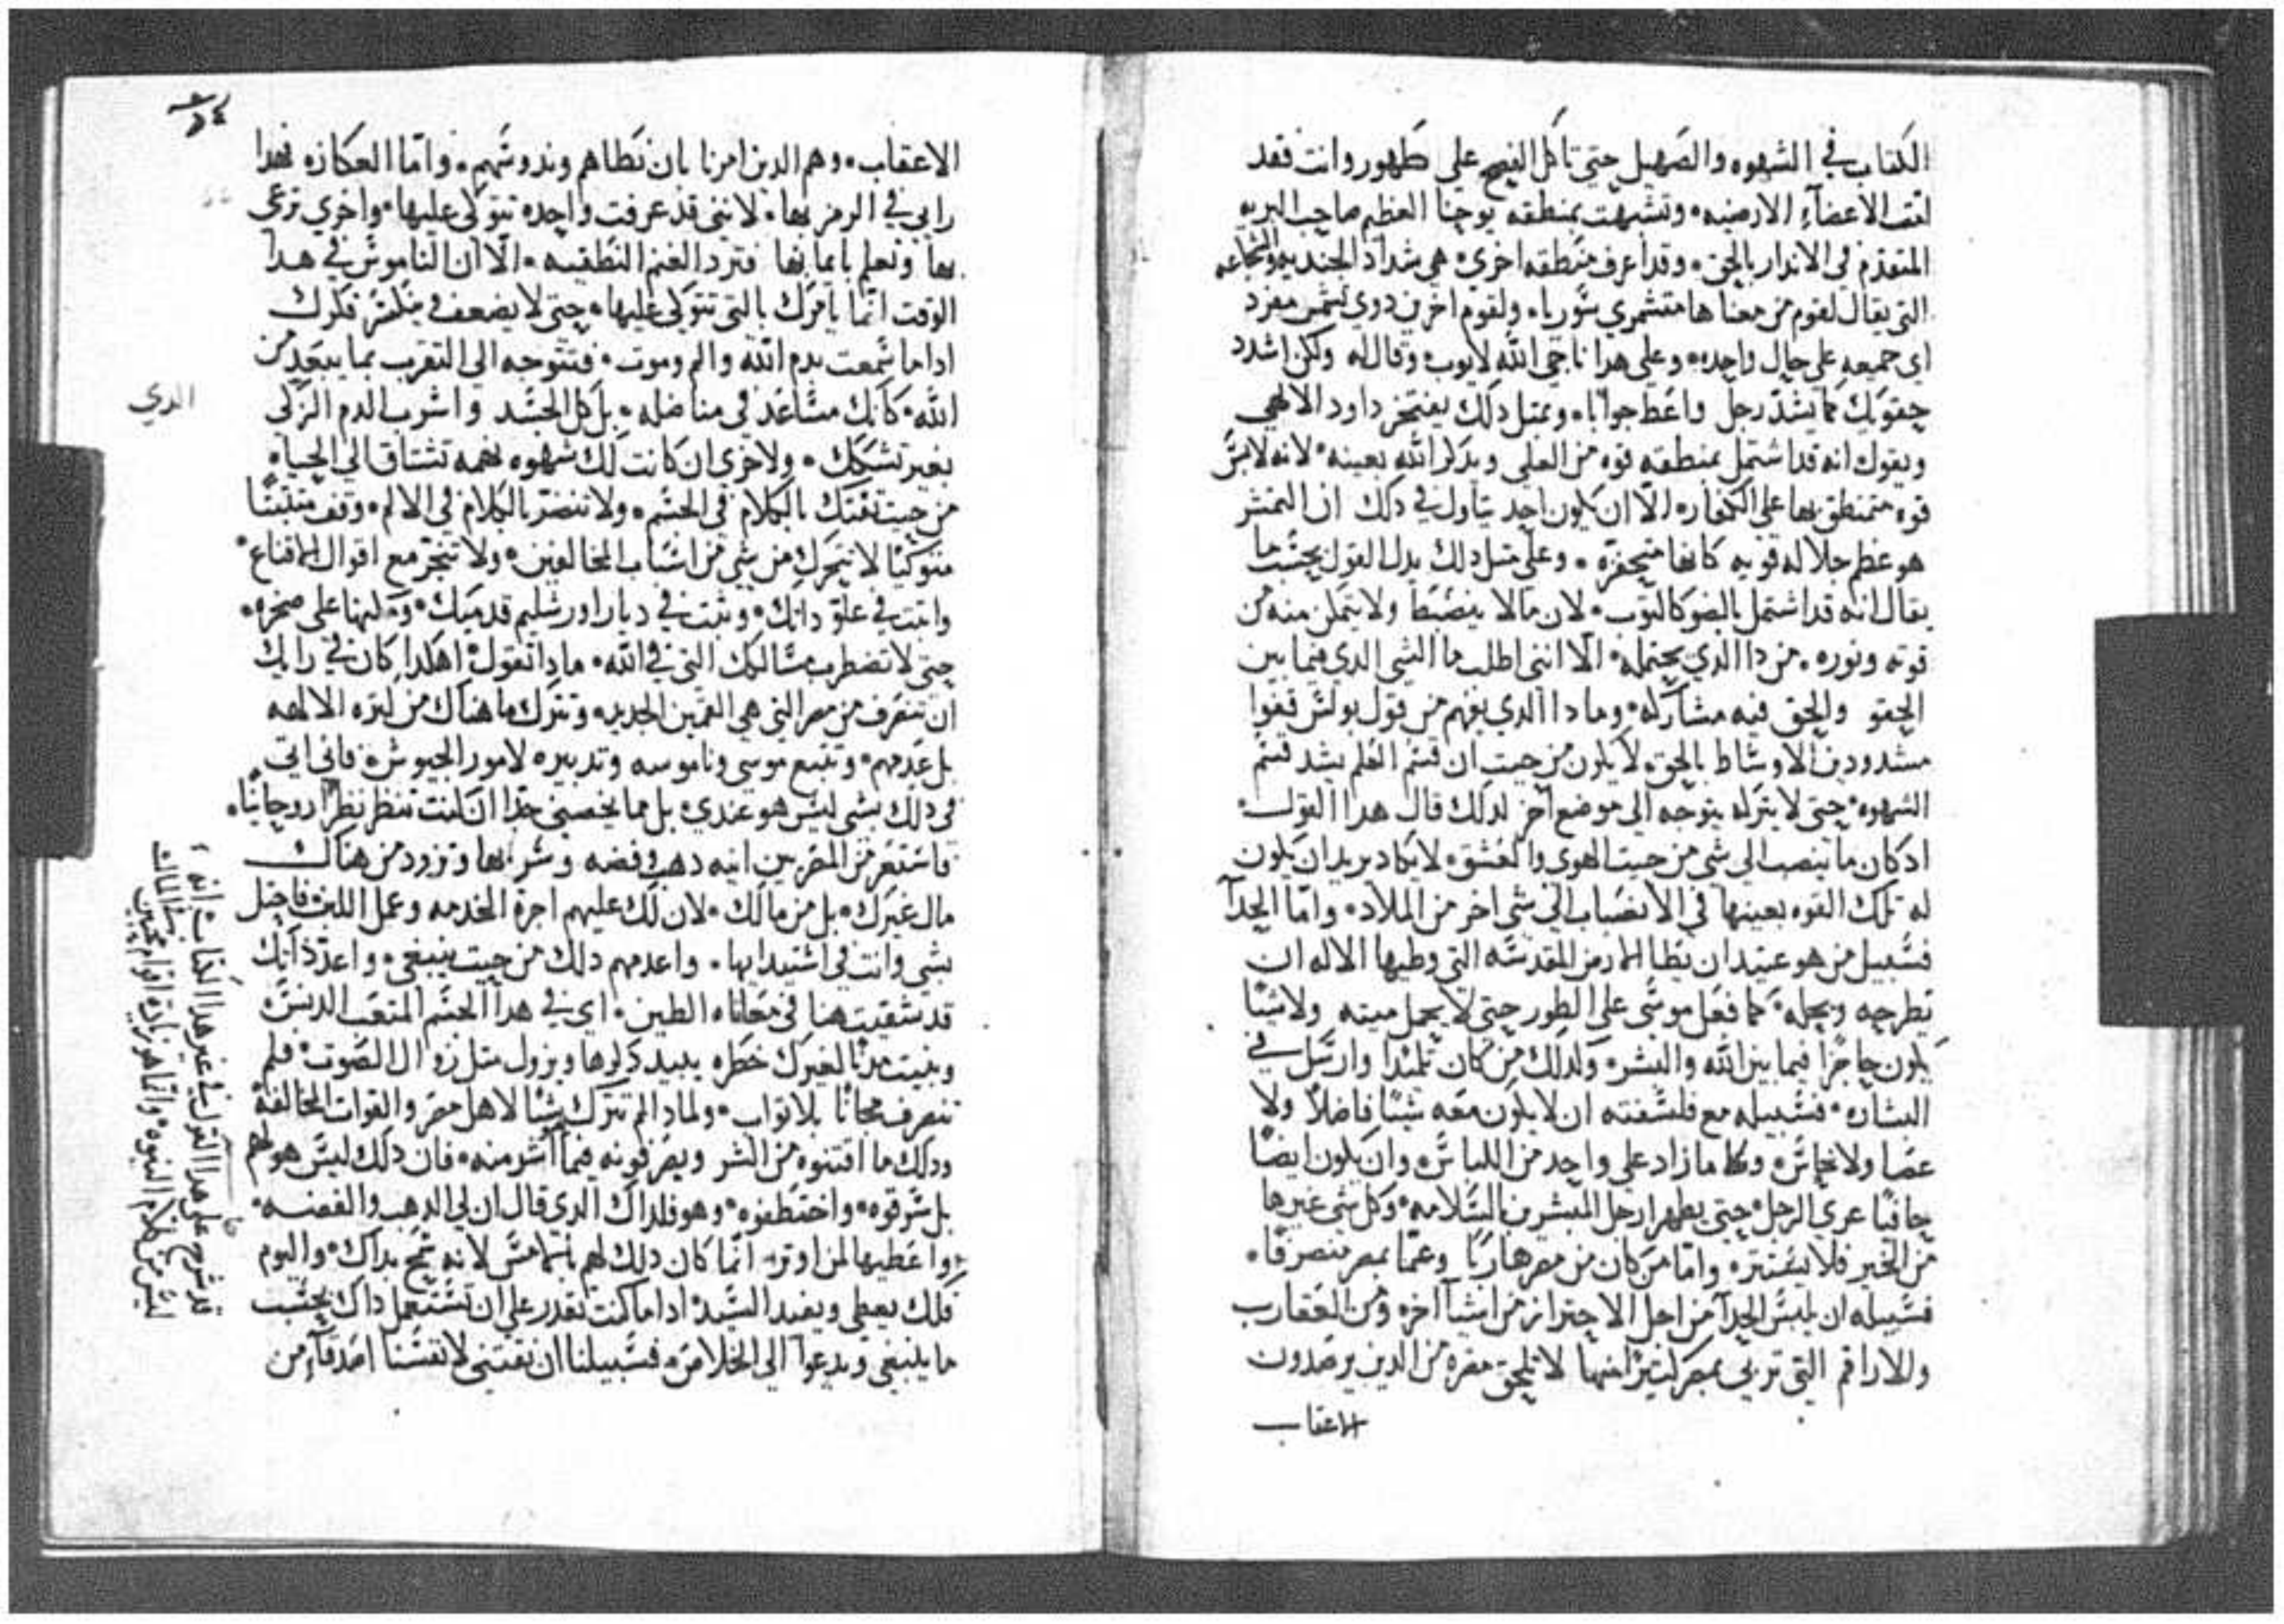 الكتاب في الشهوه والصهيل حتي تاكل الفصح علي طهور وانت فقد
اتعبت الاعضآء الارضيه ٠ وتشبهت بمنطقه يوحنا العظيم صاحب البريه
المتقدم في الاندار بالحق ٠ وقد اعرف منطقه اخري ٠ هي شداد الجنديه والشجاعه
التي يقال لقوم من معناها متشمري سوريا ٠ ولقوم اخرين دوي شمس مفرد
اي جميعه علي حال واحده ٠ وعلي هدا ناجي الله لايوب ٠ وقال له ولكن اشدد
حقويك كما يشد رجل واعط جوابا ٠ وبمتل دلك يفتخر داود الالهي
ويقول انه قد اشتمل بمنطقه قوه من العلي ويدكر الله بعينه ٠ لانه لابس
قوه متمنطق بها علي الكفار ٠ الا ان يكون احد يتاول في دلك ان
هو عظم جلاله قويه كانها ٠ وعلي متل دلك يدل القول بحسب ما
يقال انه قد اشتمل بالضو كالتوب ٠ لان ما لا ينضبط ولا يتمكن منه من
قوته ونوره ٠ من دا الدي يحتمله ٠ الا انني اطلب ما الشي الدي فيما بين
الحقو والحق فيه مشاركه ٠ وما دا الدي يفهم من قول بولس قفوا
مشدودين الاوساط بالحق ٠ لا يكون من حيت ان قسم العلم يشد قسم
الشهوه ٠ حتي لا يتركه يتوجه الي موضع اخر لدلك قال هدا القول ٠
اد كان ما ينصب الي شي من حيت الهوي والعشق ٠ لا يكاد يريد ان يكون
له تلك القوه بعينها في الانصباب الي شي اخر من الملاد ٠ واما الحدآ
فسبيل من هو عتيد ان يطا الارض المقدسه التي وطيها الاله ان
يطرحه ويحله ٠ كما فعل موسي علي الطور حتي لا يحمل ميته ولا شيئا
يكون حاجزا فيما بين الله والبشر ٠ ولدلك من كان تلميدا وارسل في
البشاره ٠ فسبيله مع فلسفته ان لا يكون معه شيئا فاضلا ولا
عصا ولا نحاس ٠ وكلما زاد علي واحد من اللباس ٠ وان يكون ايضا
حافيا عري الرجل ٠ حتي يظهر ارجل المبشرين بالسلامه ٠ وكل شي غيرها
من الخير فلا يستتر ٠ واما من كان من مصر هاربا وعما بمصر منصرفا ٠
فسبيله ان يلبس الحدآ من اجل الاحتراز من اشيآ اخر ٠ ومن العقارب
وللاراقم التي تربي بمصر كتيرا منها لا تلحق مضره من الدين يرصدون
الاعقاب
٥٤
الاعقاب ٠ وهم الدين امرنا بان نطاهم وندوسهم ٠ واما العكازه فهدا
رايي في الرمز بها ٠ لانني قد عرفت واحده نتوكي عليها ٠ واخري ترعي
بها وتعلم بايمانها فترد الغنم النطقيه ٠ الا ان الناموس في هدا
الوقت انما يامرك بالتي تتوكي عليها ٠ حتي لا يضعف فكرك
اداما سمعت بدم الله والم وموت ٠ فتتوجه الي التقرب بما يبعد من
الله ٠ كانك مساعد في مناضله ٠ بل كل الجسد واشرب الدم الزكي
بغير تشكك ٠ ولاحري ان كانت لك شهوه نهمه تشتاق الي الحياه
من حيت تفتك بالكلام في الجسم ٠ ولا تنضر بالكلام في الالم ٠ وقف متثبتا
متوكيا لا تتحرك من شي من اسباب المخالفين ٠ ولا تنجر مع اقوال الاقناع ٠
واتبت في علو داتك ٠ وثبت في ديار اورشليم قدميك ٠ ومكنها علي صخره ٠
حتي لا تضطرب مسالكك التي في الله ٠ مادا تقول ٠ اهكدا كان في رايك
ان تنصرف من مصر التي هي القمين الحديد ٠ وتترك ما هناك من كتره الالهه
بل عدمهم ٠ وتتبع موسي وناموسه وتدبيره لامور الجيوش ٠ فاني اتي
في دلك بشي ليس هو عندي ٠ بل مما يخصني جدا ان كنت تنظر نظرا روحانيا ٠
فاستعر من المصريين انيه دهب وفضه وسر بها وتزود من هناك
مال غيرك ٠ بل من مالك ٠ لان لك عليهم اجرة الخدمه وعمل اللبن فاحتل
بشي وانت في استيدايها ٠ واعدمهم دلك من حيت ينبغي ٠ واعدد انك
قد شقيت هنا في معاناه الطين ٠ اي في هدا الجسم المتعب الدنس ٠
وبنيت مدنا لغيرك خطره يبيد دكرها ويزول متل زوال الصوت ٠ فلم
تنصرف مجانا بلا تواب ٠ ولمادا لم تترك شيئا لاهل مصر والقوات المخالفه
ودلك ما اقتنوه من الشر ويصرفونه فيما اشر منه ٠ فان دلك ليس هو لهم
بل سرقوه ٠ واختطفوه ٠ وهو فلداك الدي قال ان لي الدهب والفضه ٠
واعطيها لمن اوتر ٠ انما كان دلك لهم بالامس لانه سمح بداك ٠ واليوم
فلك يعطي ويفيد السيد ٠ اداما كنت تقدر علي ان تستعمل داك بحسب
ما ينبغي ويدعوا الي الخلاص ٠ فسبيلنا ان نقتني لانفسنا اصدقآء من
الدي
قد شرح علي هدا القول في غير هدا الكتاب انه
ليس من كلام النبوه ٠ وانما هو زيادة اقوام